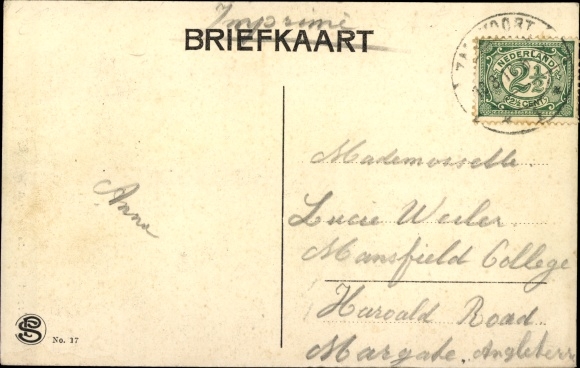 Imprimé
BRIEFKAART
NEDERLAND
2½
2½ CENT
Mademoiselle
Lucie Weiler
Mansfield College
Haroald Road
Margate. Angleterre
Anna
No. 17